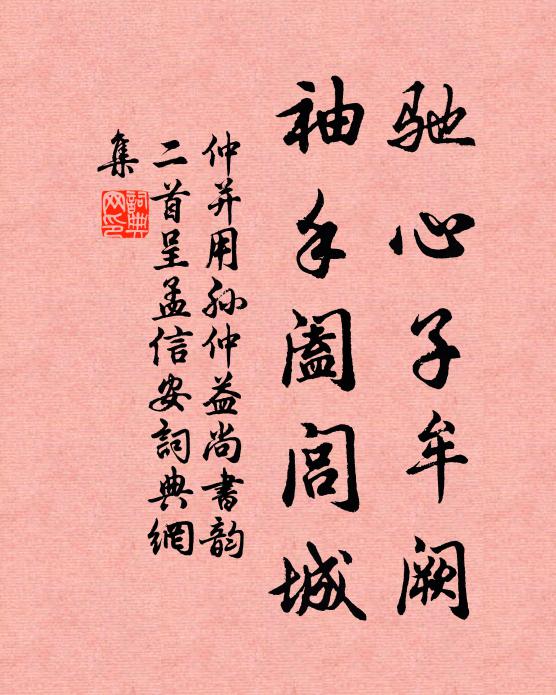 驰心子牟阙
袖手阖闾城
仲并用孙仲益尚书韵
二首呈孟信安詞典網
集
詞典网印